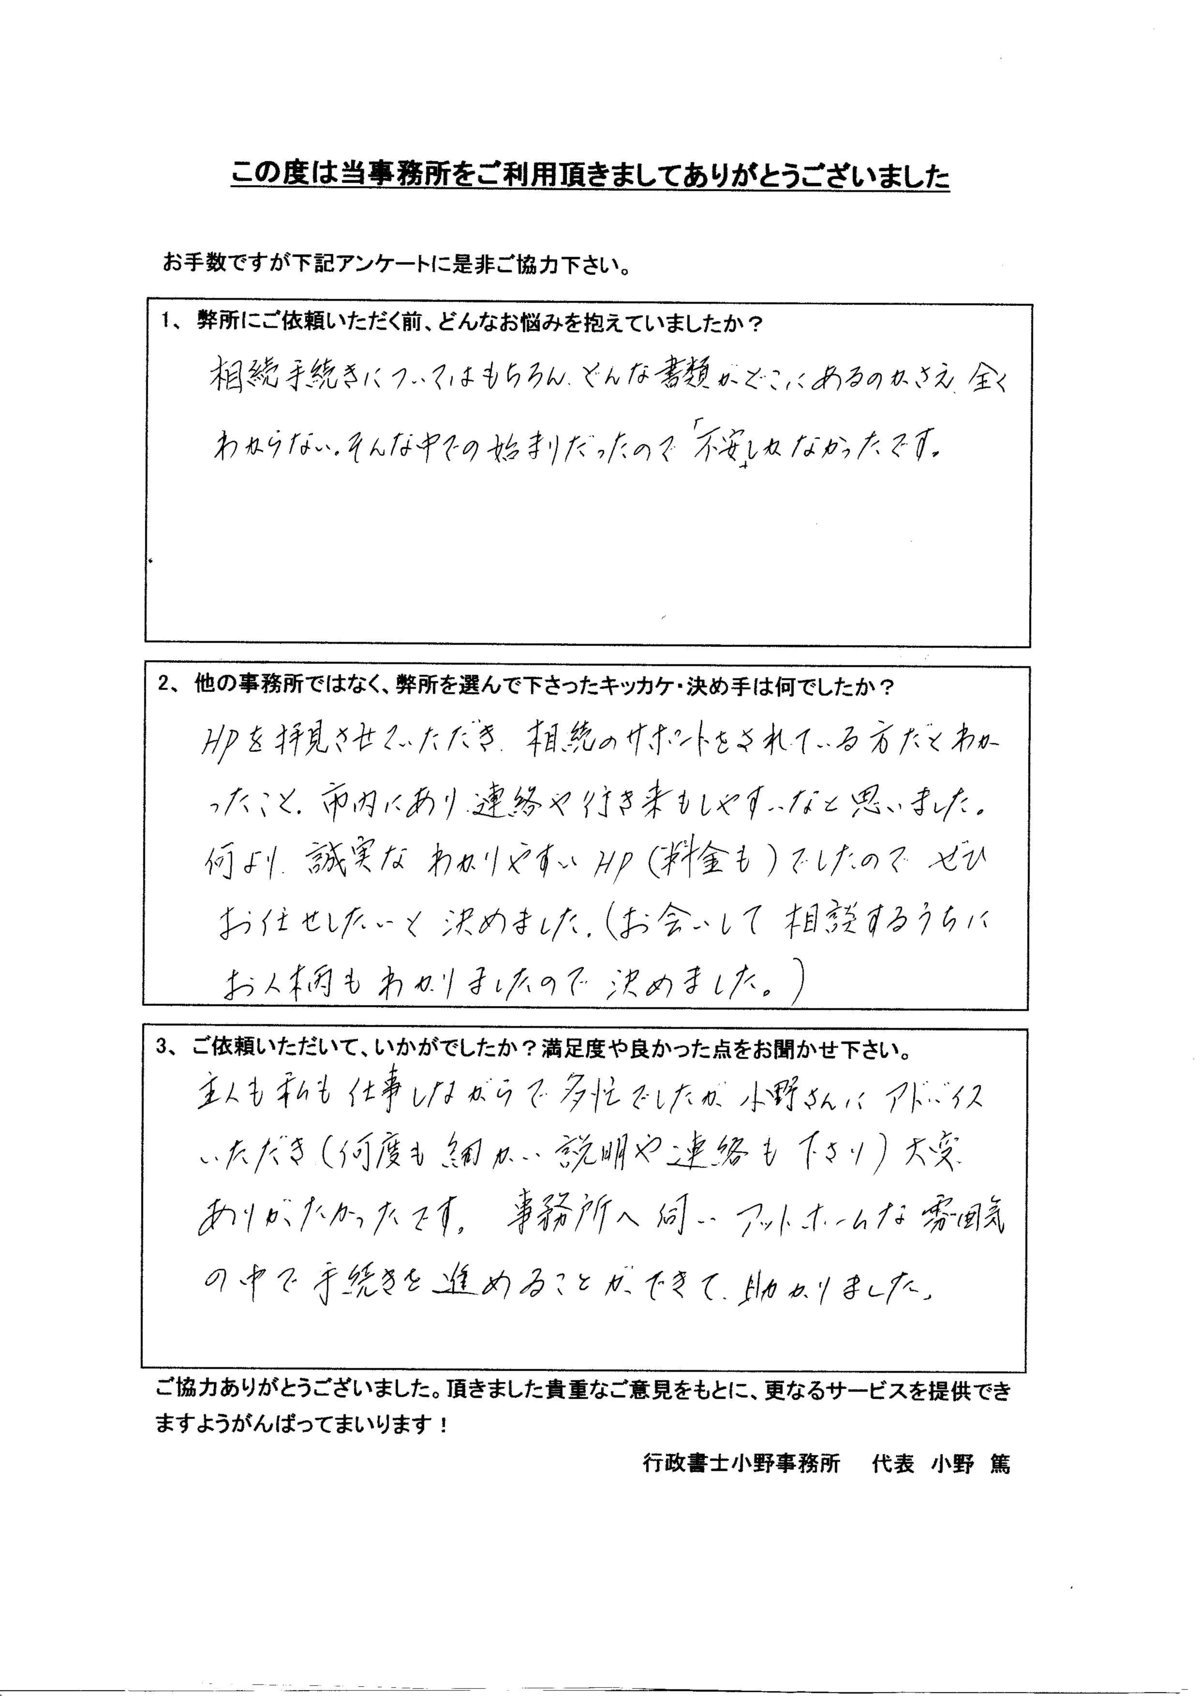 この度は当事務所をご利用頂きましてありがとうございました
お手数ですが下記アンケートに是非ご協力下さい。
1、弊所にご依頼いただく前、どんなお悩みを抱えていましたか？
相続手続きについてはもちろん、どんな書類がどこにあるのかさえ、全く
わからない。そんな中での始まりだったので「不安」しかなかったです。
2、他の事務所ではなく、弊所を選んで下さったキッカケ・決め手は何でしたか？
HPを拝見させていただき、相続のサポートをされている方だとわか
ったこと、市内にあり、連絡や行き来もしやすいなと思いました。
何より、誠実なわかりやすいHP（料金も）でしたのでぜひ
お任せしたいと決めました。（お会いして相談するうちに
お人柄もわかりましたので決めました。）
3、ご依頼いただいて、いかがでしたか？満足度や良かった点をお聞かせ下さい。
主人も私も仕事しながらで多忙でしたが、小野さんにアドバイス
いただき（何度も細かい説明や連絡も下さり）大変
ありがたかったです。事務所へ伺いアットホームな雰囲気
の中で手続きを進めることができて、助かりました。
ご協力ありがとうございました。頂きました貴重なご意見をもとに、更なるサービスを提供でき
ますようがんばってまいります！
行政書士小野事務所　代表　小野　篤